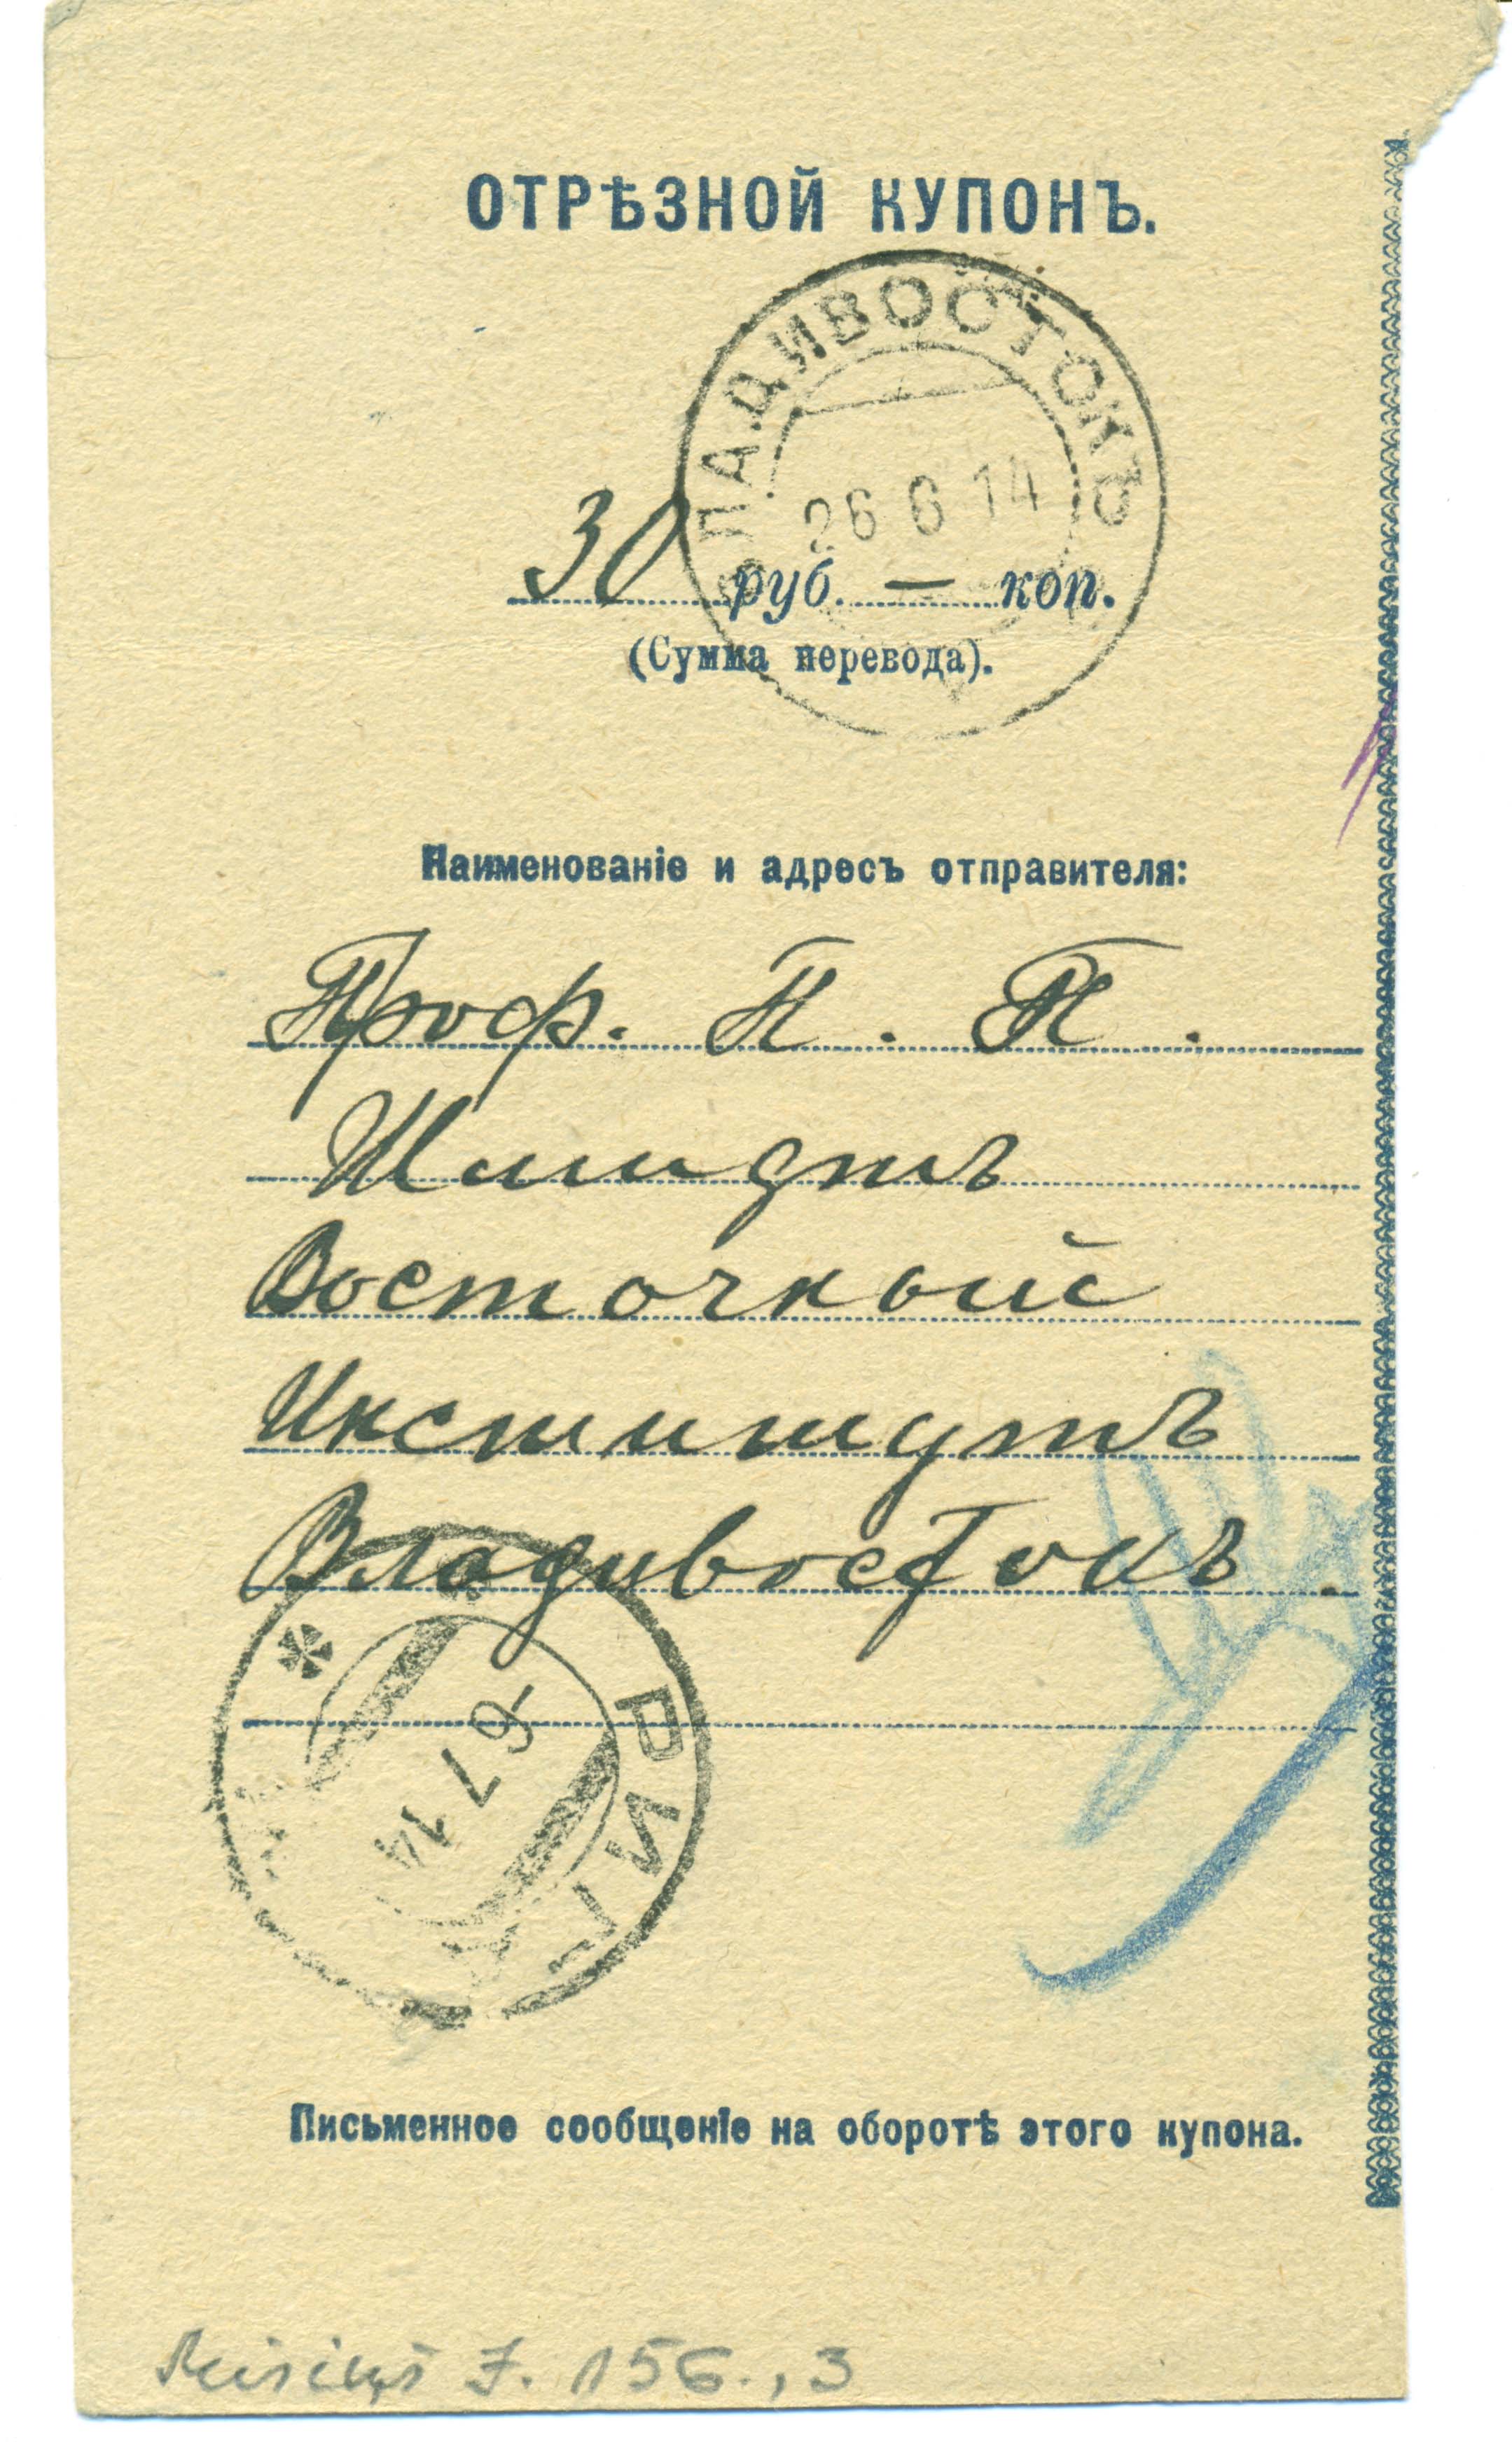 ОТРѢЗНОЙ КУПОНЪ.
ВЛАДИВОСТОКЪ
26 6 14
30 руб. — коп.
(Сумма перевода).
Наименованіе и адресъ отправителя:
Проф. П. П.
Шмидтъ
Восточный
Институтъ
Владивостокъ.
РИГА
-6 7 14
Письменное сообщеніе на оборотѣ этого купона.
Misiņš J. 156., 3